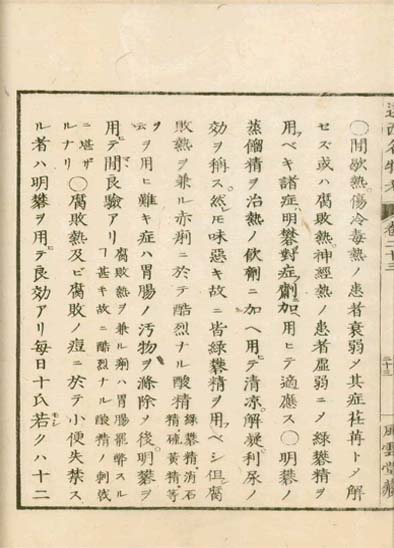 卷二十三
二十三
風雲堂藏
〇間歇熱傷冷毒熱ノ患者衰弱〆其症荏苒ト〆解
セズ或ハ腐敗熱神經熱ノ患者虛弱ニ〆綠礬精ヲ
用フベキ諸症ニ明礬對症ノ劑ニ加ヘ用ヒテ適應ス〇明礬ノ
蒸餾精ヲ治熱ノ飮劑ニ加ヘ用テ清凉解凝利尿ノ
効ヲ稱ス然𪜈味惡キ故ニ皆綠礬精ヲ用フベシ但腐
敗熱ヲ兼ル赤痢ニ於テ酷烈ナル酸精
綠礬精消石
精硫黃精等
ヲ用ヒ難キ症ハ胃腸ノ汚物ヲ滌除ノ後明礬ヲ
用テ間良驗アリ
腐敗熱ヲ兼ル痢ハ胃腸罷弊スル
ヿ甚キ故ニ酷烈ナル酸精ノ刺戟
ニ堪ザ
ルナリ
〇腐敗熱及ビ腐敗ノ痘ニ於テ小便失禁ス
ル者ハ明礬ヲ用テ良効アリ每日十氏若クハ十二